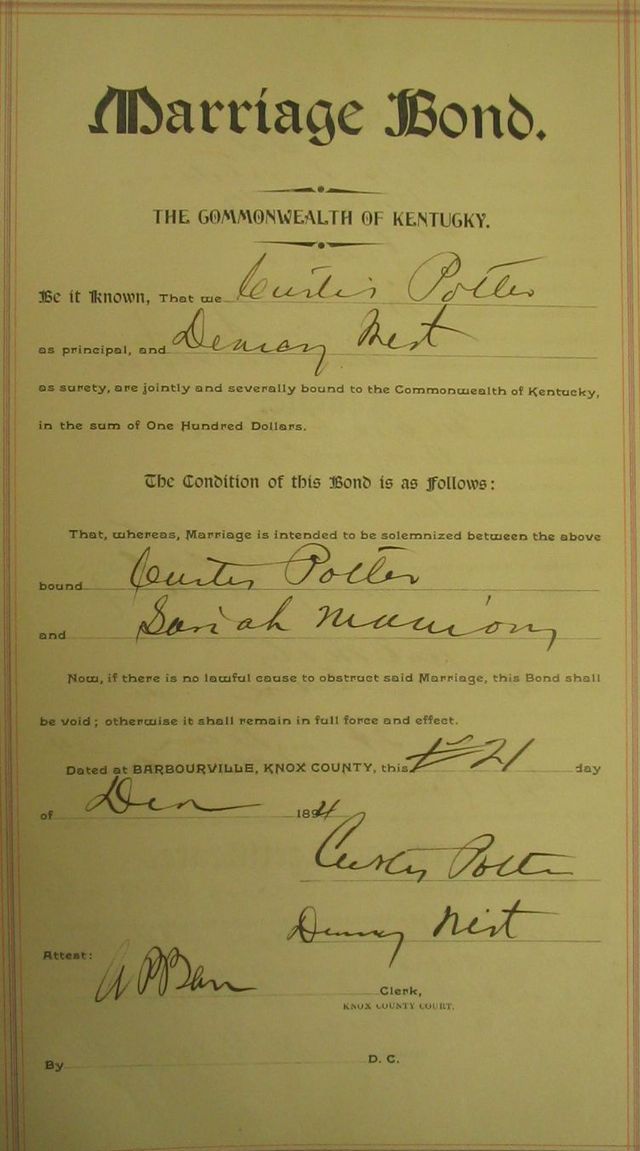 Marriage Bond.
THE COMMONWEALTH OF KENTUCKY.
Be it Known, That we Curtis Potter
as principal, and
as surety, are jointly and severally bound to the Commonwealth of Kentucky,
in the sum of One Hundred Dollars.
The Condition of this Bond is as Follows:
That, whereas, Marriage is intended to be solemnized between the above
bound Curtis Potter
and Sariah
Now, if there is no lawful cause to obstruct said Marriage, this Bond shall
be void; otherwise it shall remain in full force and effect.
Dated at BARBOURVILLE, KNOX COUNTY, this 21 day
of Dec 1894
Curtis Potter
Attest:
Clerk,
KNOX COUNTY COURT.
By D. C.